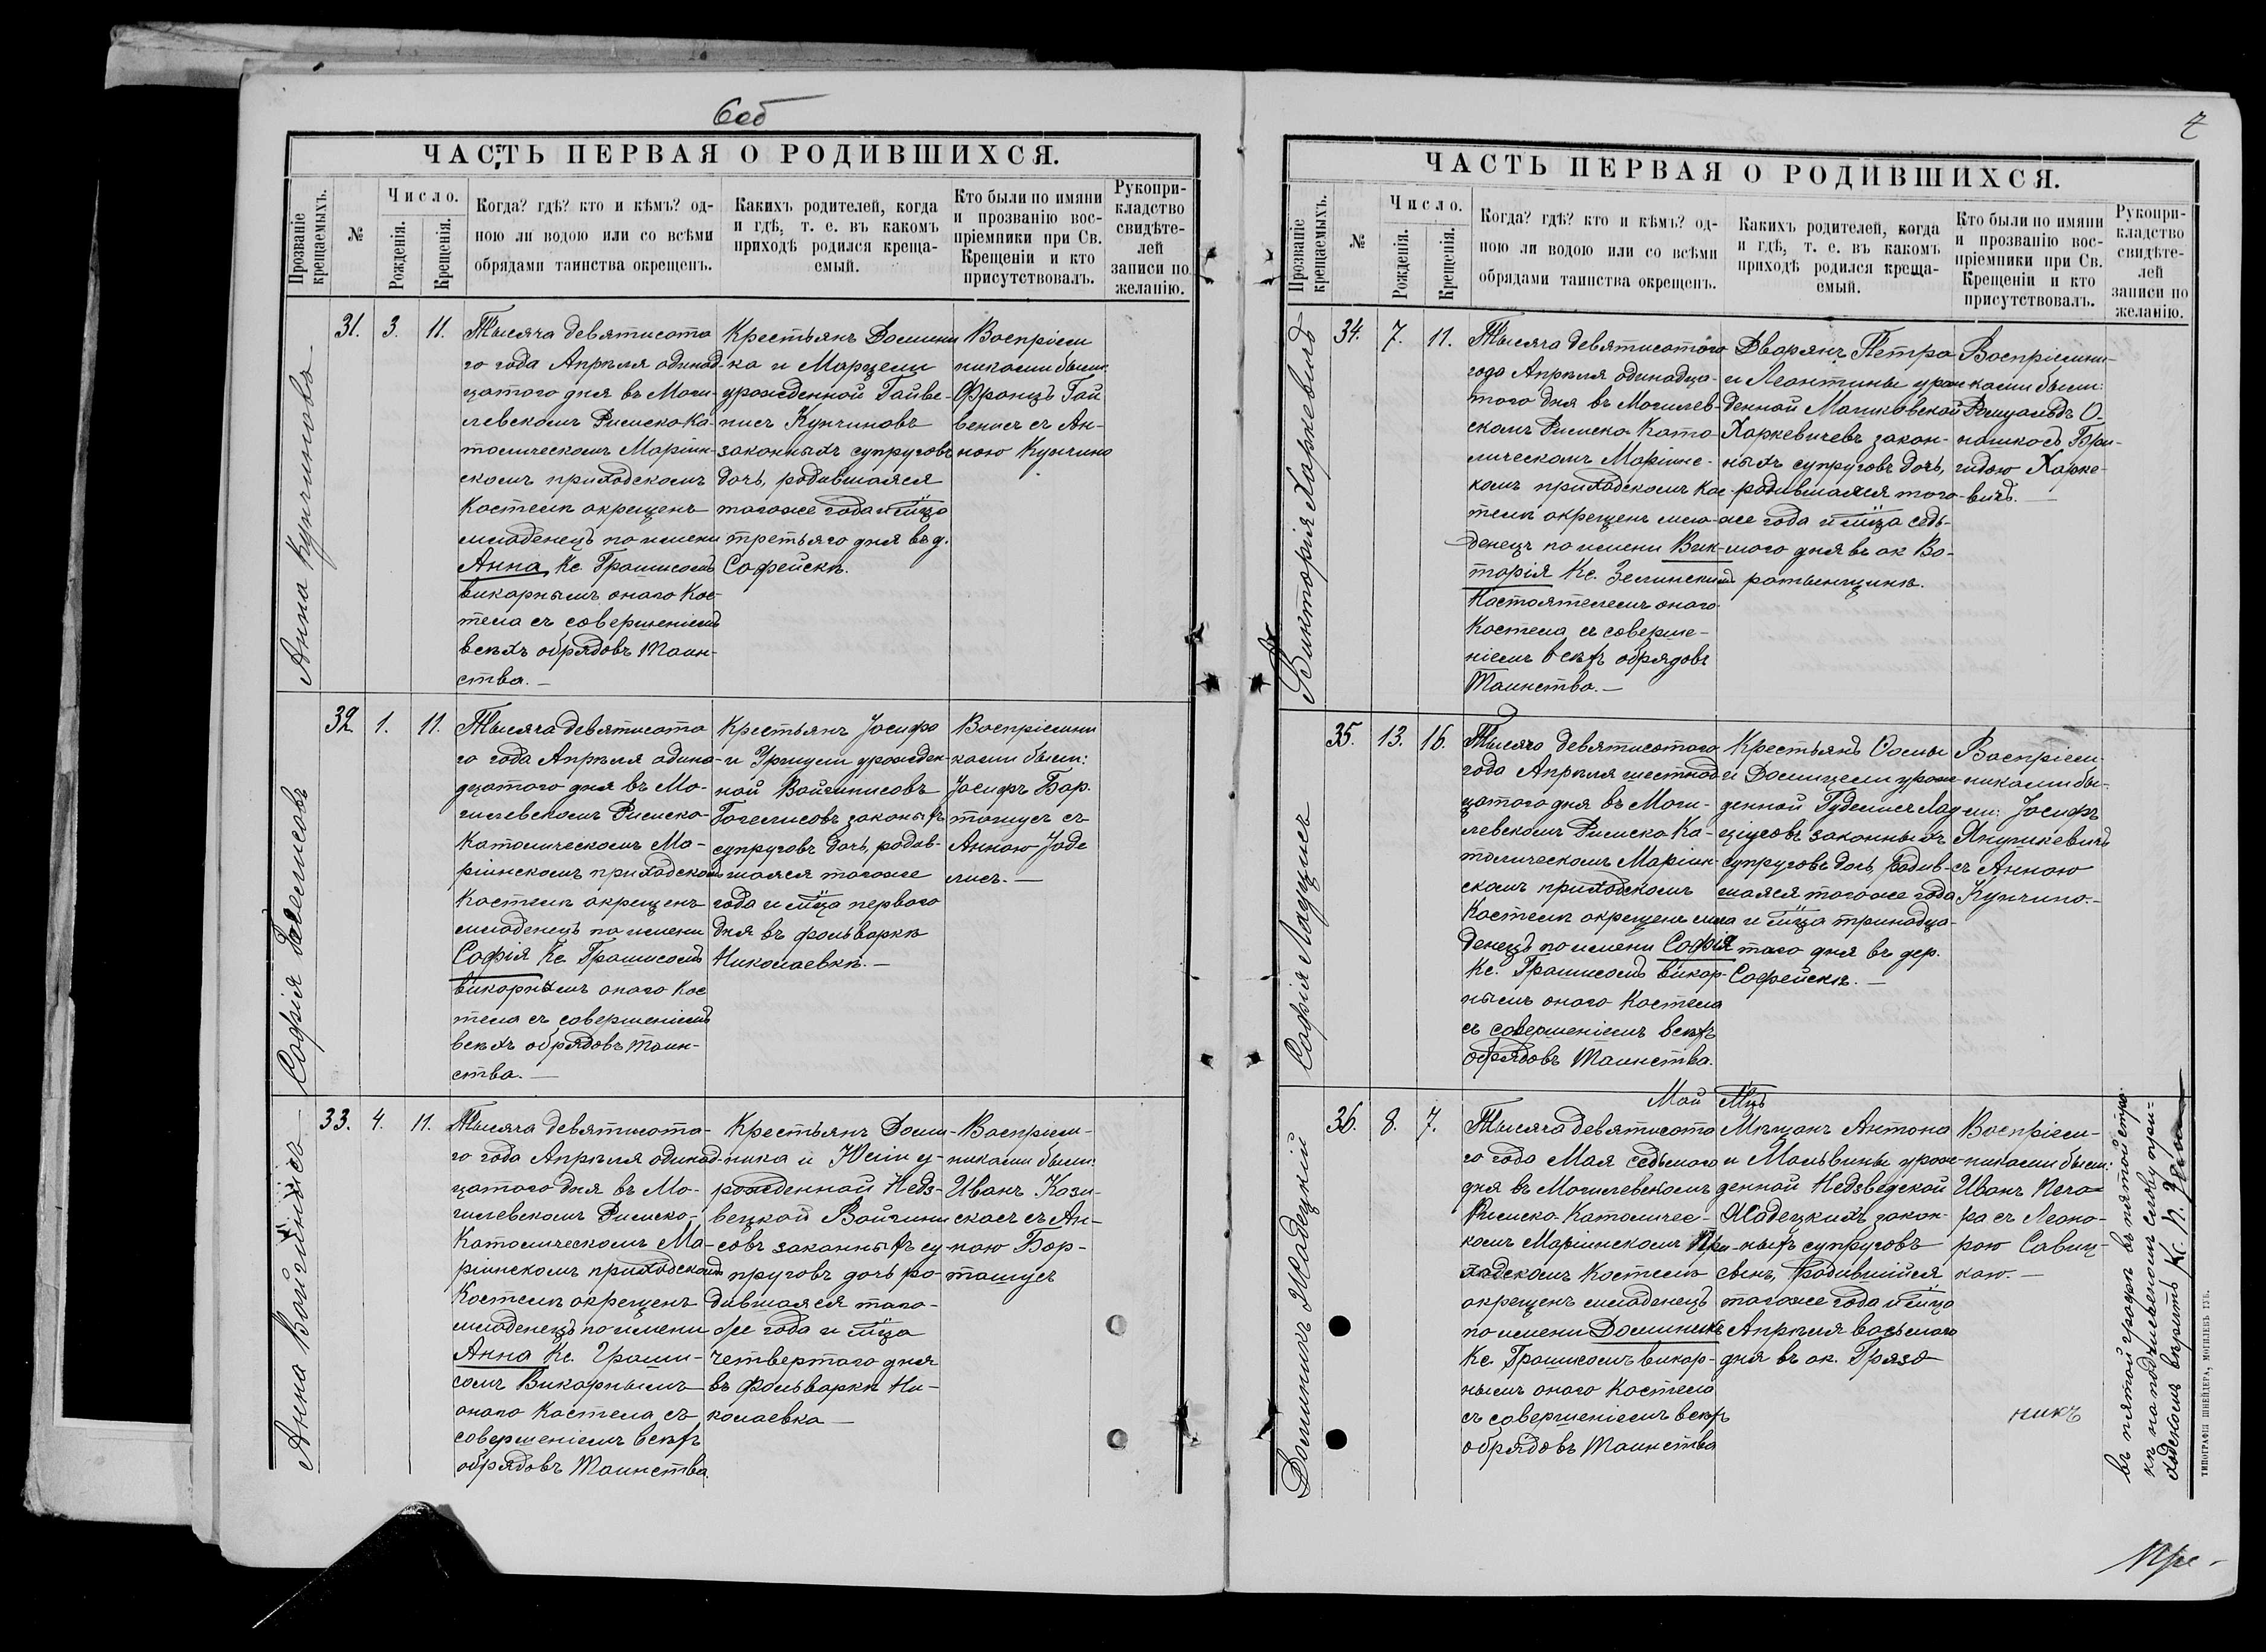 6об
ЧАСТЬ ПЕРВАЯ О РОДИВШИХСЯ.
Прозваніе крещаемыхъ.
№
Число.
Рожденія.
Крещенія.
Когда? гдѣ? кто и кѣмъ? од-
ною ли водою или со всѣми
обрядами таинства окрещенъ.
Какихъ родителей, когда
и гдѣ, т. е. въ какомъ
приходѣ родился креща-
емый.
Кто были по имяни
и прозванію вос-
пріемники при Св.
Крещеніи и кто
присутствовалъ.
Рукопри-
кладство
свидѣте-
лей
записи по
желанію.
Анна Кунчиновъ
31.
3.
11.
Тысяча девятисота
го года Апрѣля одинад-
цатого дня въ Моги-
левскомъ Римско-Ка-
толическомъ Маріин-
скомъ приходскомъ
Костелѣ окрещенъ
младенецъ по имени
Анна, Кс. Грашисомъ
викарнымъ онаго Кос-
тела съ совершеніемъ
всѣхъ обрядовъ Таин-
ства.—
Крестьянъ Домини
ка и Марцели
урожденной Гайве-
нисъ Кунчиновъ
законныхъ супруговъ
дочь, родившаяся
тогоже года и мѣца
третьяго дня въ д.
Софейскѣ.
Воспріем
никами были:
Францъ Гай
венисъ съ Ан-
ною Кунчино
Софія
32
1.
11.
Тысяча девятисота
го года Апрѣля адина-
дцатого дня въ Мо-
гилевскомъ Римско-
Католическомъ Ма-
ріинскомъ приходскомъ
Костелѣ окрещенъ
младенецъ по имени
Софія Кс. Грашисомъ
викарнымъ онаго Кос
тела съ совершеніемъ
всѣхъ обрядовъ Таин-
ства.—
Крестьянъ Іосифа
и Уршули урожден
ной Войчинисовъ
законныхъ
супруговъ дочь, родив-
шаяся тогоже
года и мѣца первого
дня въ фольваркѣ
Николаевкѣ.—
Воспріемни
ками были:
Іосифъ Бар.
тошусъ съ
Анною Іоде
лисъ.—
Анна
33.
4.
11.
Тысяча девятисота-
го года Апрѣля одинад-
цатого дня въ Мо-
гилевскомъ Римско-
Католическомъ Ма-
ріинскомъ приходскомъ
Костелѣ окрещенъ
младенецъ по имени
Анна Кс. Граши-
сомъ Викарнымъ
онаго Костела съ
совершеніемъ всѣхъ
обрядовъ Таинства.
Крестьянъ Доми-
ника и Юліи у-
рожденной Недз-
вецкой Войчини
совъ законныхъ су-
пруговъ дочь ро-
дившаяся того-
же года и мѣца
четвертаго дня
въ фольваркѣ Ни-
колаевка—
Воспріем-
никами были:
Иванъ Кази-
съ Ан-
ною Бор-
тошусъ
7
ЧАСТЬ ПЕРВАЯ О РОДИВШИХСЯ.
Прозваніе крещаемыхъ.
№
Число.
Рожденія.
Крещенія.
Когда? гдѣ? кто и кѣмъ? од-
ною ли водою или со всѣми
обрядами таинства окрещенъ.
Какихъ родителей, когда
и гдѣ, т. е. въ какомъ
приходѣ родился креща-
емый.
Кто были по имяни
и прозванію вос-
пріемники при Св.
Крещеніи и кто
присутствовалъ.
Рукопри-
кладство
свидѣте-
лей
записи по
желанію.
Викторія Харкевичъ
34.
7.
11.
Тысяча девятисотого
года Апрѣля одинадца-
того дня въ Могилев-
скомъ Римско-Като-
лическомъ Маріинс-
комъ приходскомъ Кос-
телѣ окрещенъ мла-
денецъ по имени Вик-
торія Кс. Зелинскимъ
Настоятелемъ онаго
Костела съ соверше-
ніемъ всѣхъ обрядовъ
Таинства.—
Дворянъ Петра
и Леонтины урож
денной Машковской
Харкевичевъ закон-
ныхъ супруговъ дочь,
родившаяся того-
же года и мѣца седь-
мого дня въ ок Во-
ротынщинѣ.
Воспріемни-
ками были:
Ромуальдъ О-
Бри-
гидою Харке-
вичъ.—
Софія Ладуцисъ
35.
13.
16.
Тысяча девятисотого
года Апрѣля шестнад-
цатого дня въ Моги-
левскомъ Римско-Ка-
толическомъ Маріин-
скомъ приходскомъ
Костелѣ окрещенъ мла
денецъ по имени Софія
Кс. Грашисомъ викар-
нымъ онаго Костела
съ совершеніемъ всѣхъ
обрядовъ Таинства.
Крестьянъ
и Домицели урож
денной
законныхъ
супруговъ дочь, родив-
шаяся тогоже года
и мѣца тринадца-
таго дня въ дер.
Софейскѣ.—
Воспріем-
никами бы-
ли: Іосифъ
Янушкевичъ
съ Анною
Кунчино.—
Май Мѣцъ
Доминикъ Жадецкій
36.
8.
7.
Тысяча девятисота
го года Мая седьмого
дня въ Могилевскомъ
Римско-Католичес-
комъ Маріинскомъ При-
ходскомъ Костелѣ
окрещенъ младенецъ
по имени Доминикъ
Кс. Грашисомъ викар-
нымъ онаго Костела
съ совершеніемъ всѣхъ
обрядовъ Таинства
Мѣщанъ Антона
и Мальвины урож-
денной Недзведской
Жадецкихъ закон-
ныхъ супруговъ
сынъ, родившійся
тогоже года и мѣца
Апрѣля восьмого
дня въ ок.
Воспріем-
никами были:
Иванъ
ра съ Леоно-
рою Савиц-
кою.—
никъ
въ пятой графѣ въ пятой стро-
кѣ
ходскомъ вѣрить Кс.
ТИПОГРАФІЯ ШНЕЙДЕРА, МОГИЛЕВЪ ГУБ.